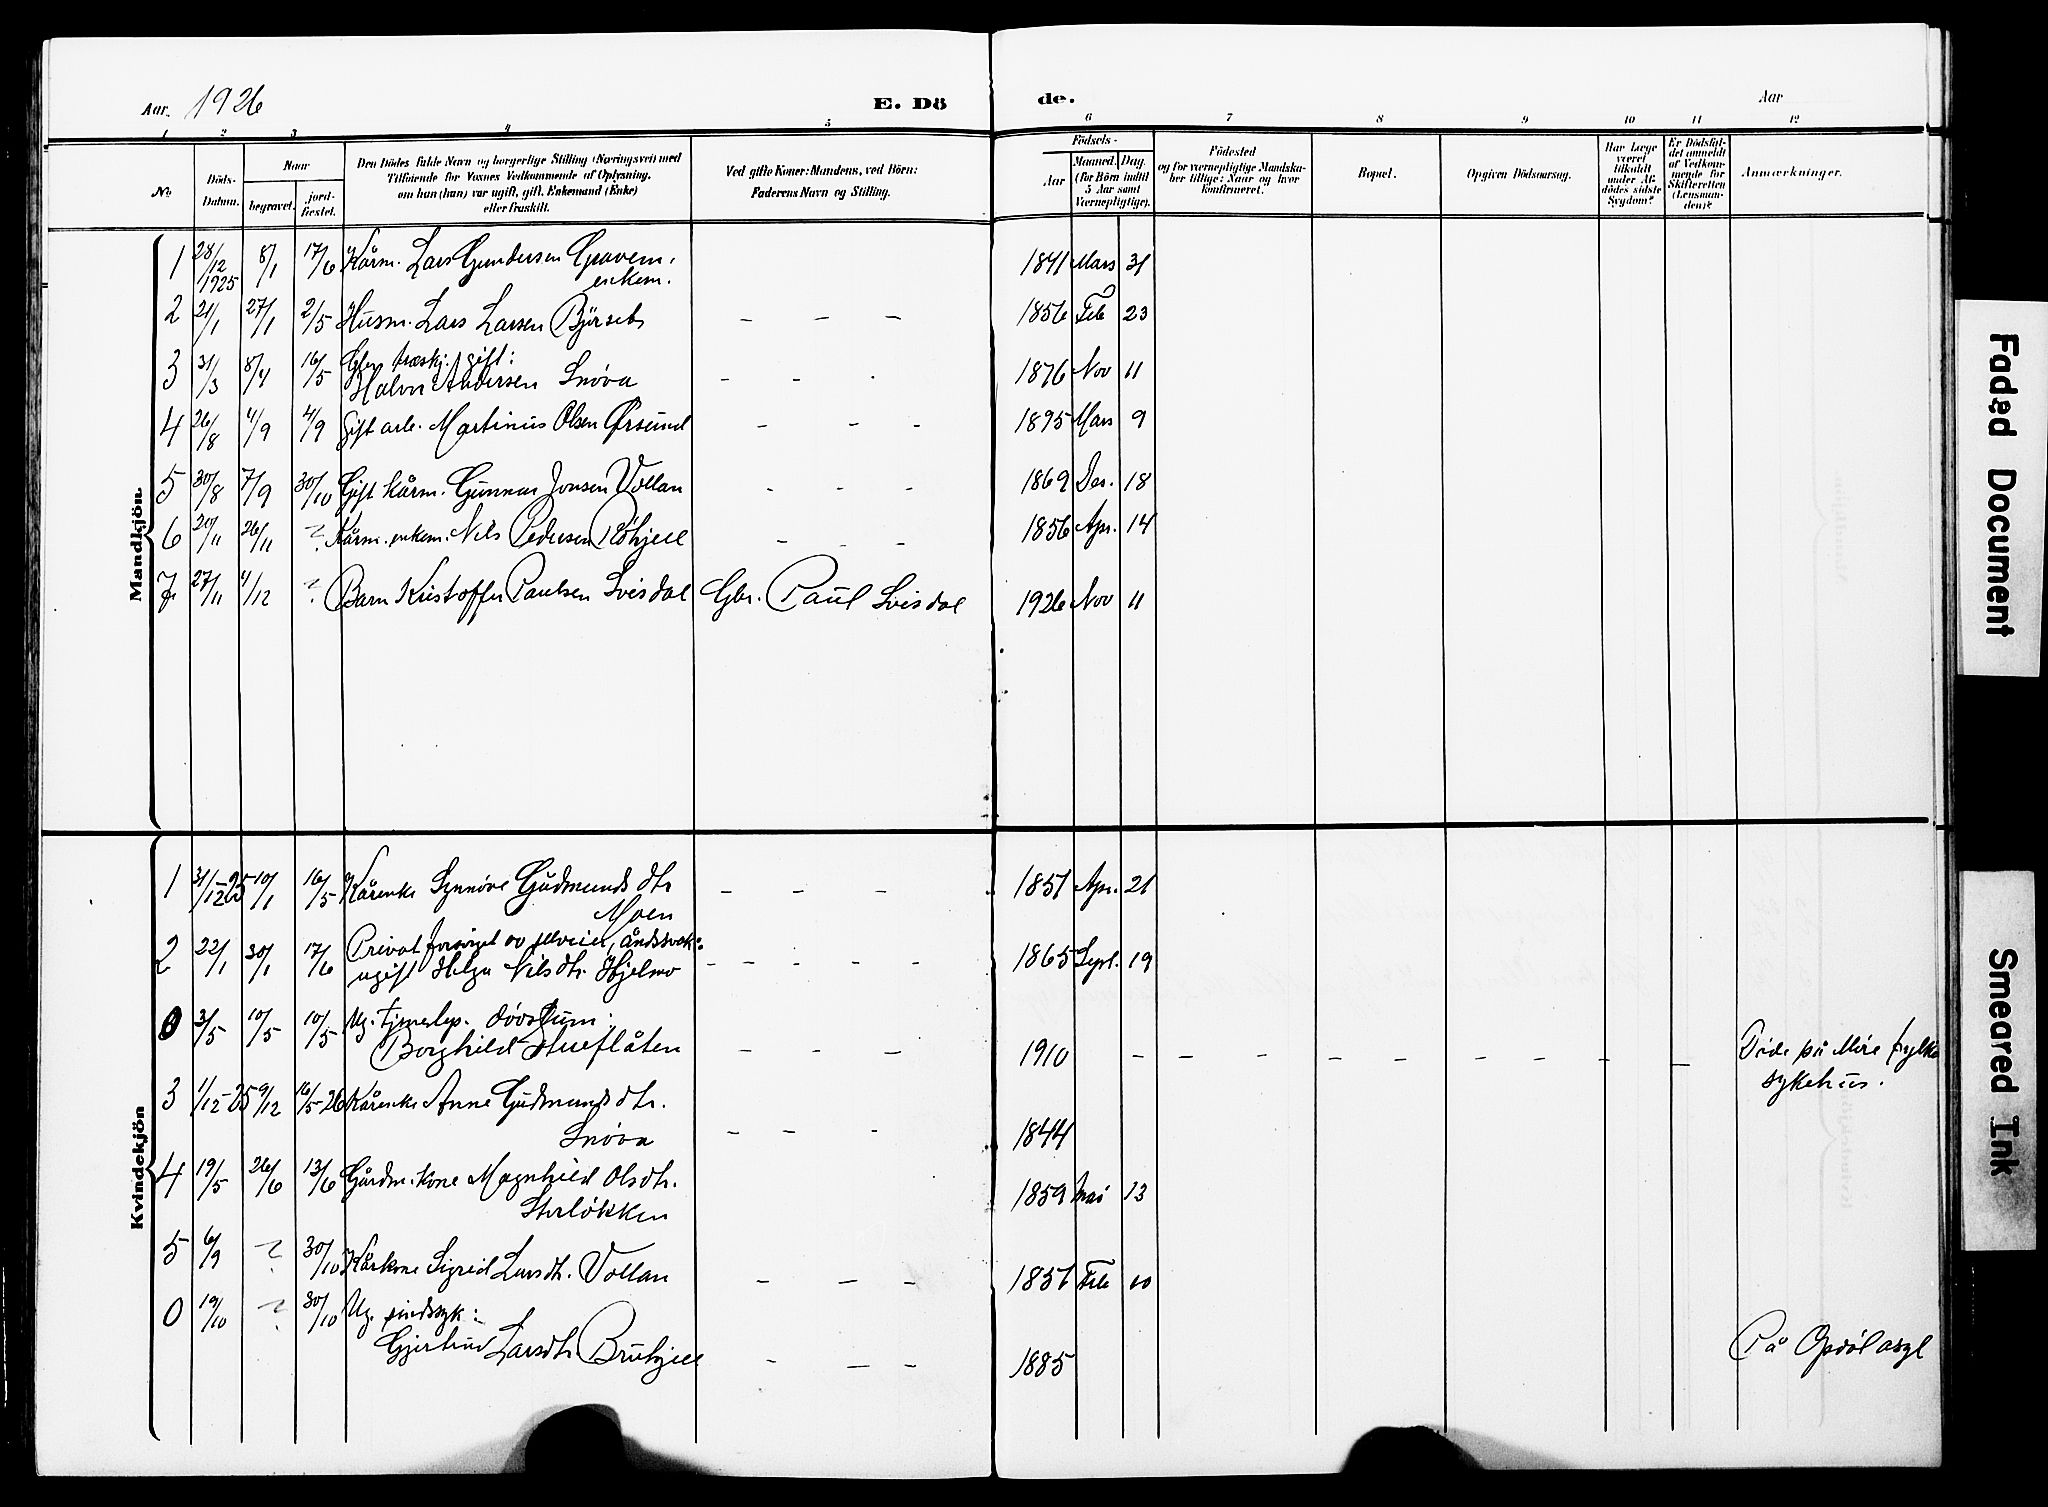 Aar. 1926
E. Dö
de.
Aar
1 2 3 4 5 6 7 8 9 10 11 12
No
Döds-Datum.
Naar
begravet.
jord-fæstet.
Den Dödes fulde Navn og borgerlige Stilling (Næringsvei) med
Tilföiende for Voxnes Vedkommende af Oplysning,
om hun (han) var ugift, gift, Enkemand (Enke)
eller fraskilt.
Ved gifte Koner: Mandens, ved Börn:
Faderens Navn og Stilling.
Födsels-
Aar
Maaned. Dag.
(for Börn indtil
5 Aar samt
Værnepligtige).
Födested
og for værnepligtige Mandska-
ber tillige: Naar og hvor
konfirmeret.
Bopæl.
Opgiven Dödsaarsag.
Har Læge
været
tilkaldt
under Af-
dödes sidste
Sygdom?
Er Dödsfal-
det anmeldt
af Vedkom-
mende for
Skifteretten
(Lensman-
den)?
Anmærkninger.
Mandkjön.
1 28/12 1925 8/1 17/6 Kårm. Lars Gundersen Gravem, 1841 Mars 31
enkem.
2 21/1 27/1 2/5 Husm. Lars Larsen Bjørset, – – – 1856 Feb 23
3 31/3 8/4 16/5 træskj. gift: – – . 1876 Nov 11
Halvor Andersen Snøva
4 26/8 4/9 4/9 Gift arb. Martinus Olsen Ørsund – – – 1895 Mars 9
5 30/8 7/9 30/10 Gift kårm. Gunnar Jonsen Vollan – – – 1869 Des. 18
6 20/11 26/11 ? Kårm. enkem. Nils Pedersen Røhjell – – – 1856 Apr. 14
7 27/11 4/12 ? Barn Kristoffer Paulsen Svisdal Gbr. Paul Svisdal 1926 Nov 11
Kvindekjön
1 31/12-25 10/1 16/5 Kårenke Synnøve Gudmundsdtr – – – 1851 Apr. 21
Moen
2 22/1 30/1 17/6 Privat forsørget av, åndssvak:
ugift Helga Nilsdtr. Hjelmo – – – – – 1865 Sept. 19
0 3/5 10/5 10/5 Ug. døvstum:
Borghild Hueflåten – – – 1910 – – – – – – – – Døde på Møre fylke
sykehus.
3 1/12-25 9/12 16/5-26 Kårenke Anne Gudmundsdtr.
Snøva – – – 1844
4 19/5 26/6 13/6 Gårdm.kone Magnhild Olsdtr. 1859 Mai 13
Storløkken
5 6/9 ? 30/10 Kårkone Sigrid Larsdtr. Vollan – – – 1851 Feb 10
0 19/10 ? 30/10 Ug. sindssyk:
Gjertrud Larsdtr. Bruhjell – – – 1885 På Opdøl asyl
Faded Document
Smeared Ink